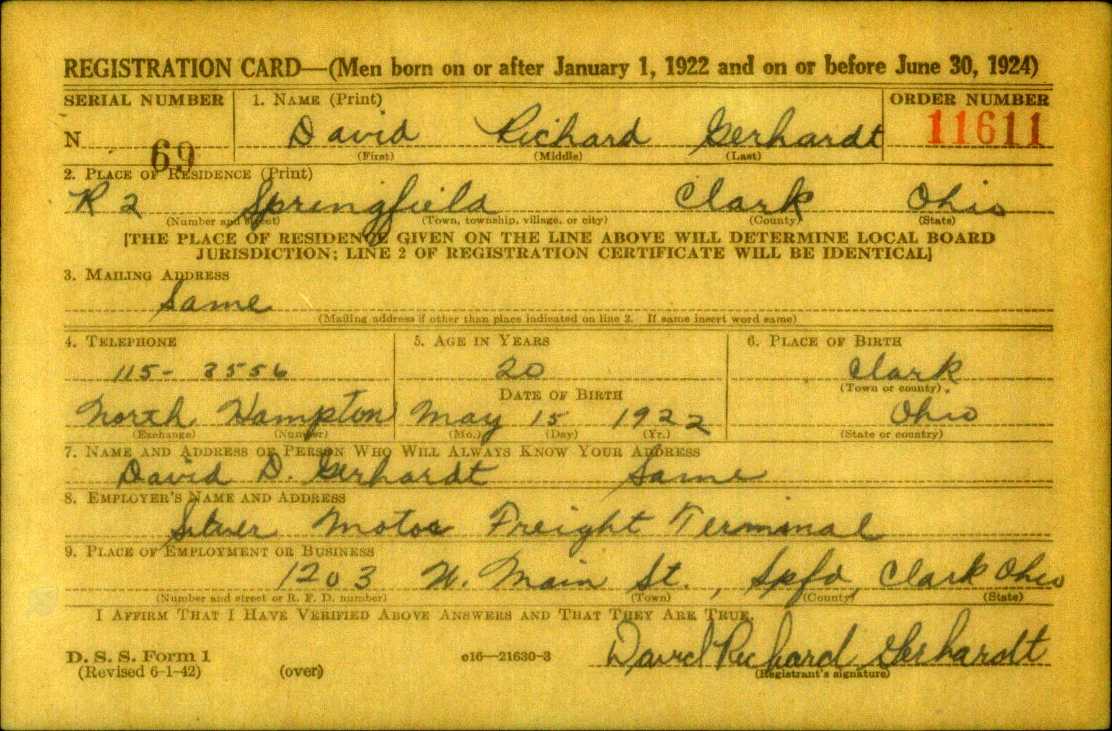 REGISTRATION CARD—(Men born on or after January 1, 1922 and on or before June 30, 1924)
SERIAL NUMBER 1. NAME (Print) ORDER NUMBER
N 69 David Richard Gerhardt 11611
(First) (Middle) (Last)
2. PLACE OF RESIDENCE (Print)
R 2 Springfield Clark Ohio
(Number and street) (Town, township, village, or city) (County) (State)
[THE PLACE OF RESIDENCE GIVEN ON THE LINE ABOVE WILL DETERMINE LOCAL BOARD
JURISDICTION; LINE 2 OF REGISTRATION CERTIFICATE WILL BE IDENTICAL]
3. MAILING ADDRESS
Same
(Mailing address if other than place indicated on line 2. If same insert word same)
4. TELEPHONE 5. AGE IN YEARS 6. PLACE OF BIRTH
115- 3556 20 Clark
DATE OF BIRTH (Town or county)
North Hampton May 15 1922 Ohio
(Exchange) (Number) (Mo.) (Day) (Yr.) (State or country)
7. NAME AND ADDRESS OF PERSON WHO WILL ALWAYS KNOW YOUR ADDRESS
David D. Gerhardt Same
8. EMPLOYER'S NAME AND ADDRESS
Motor Freight Terminal
9. PLACE OF EMPLOYMENT OR BUSINESS
1203 W. Main St., Spfd, Clark Ohio
(Number and street or R. F. D. number) (Town) (County) (State)
I AFFIRM THAT I HAVE VERIFIED ABOVE ANSWERS AND THAT THEY ARE TRUE.
D. S. S. Form 1 c16—21630-3 David Richard Gerhardt
(Revised 6-1-42) (over) (Registrant's signature)